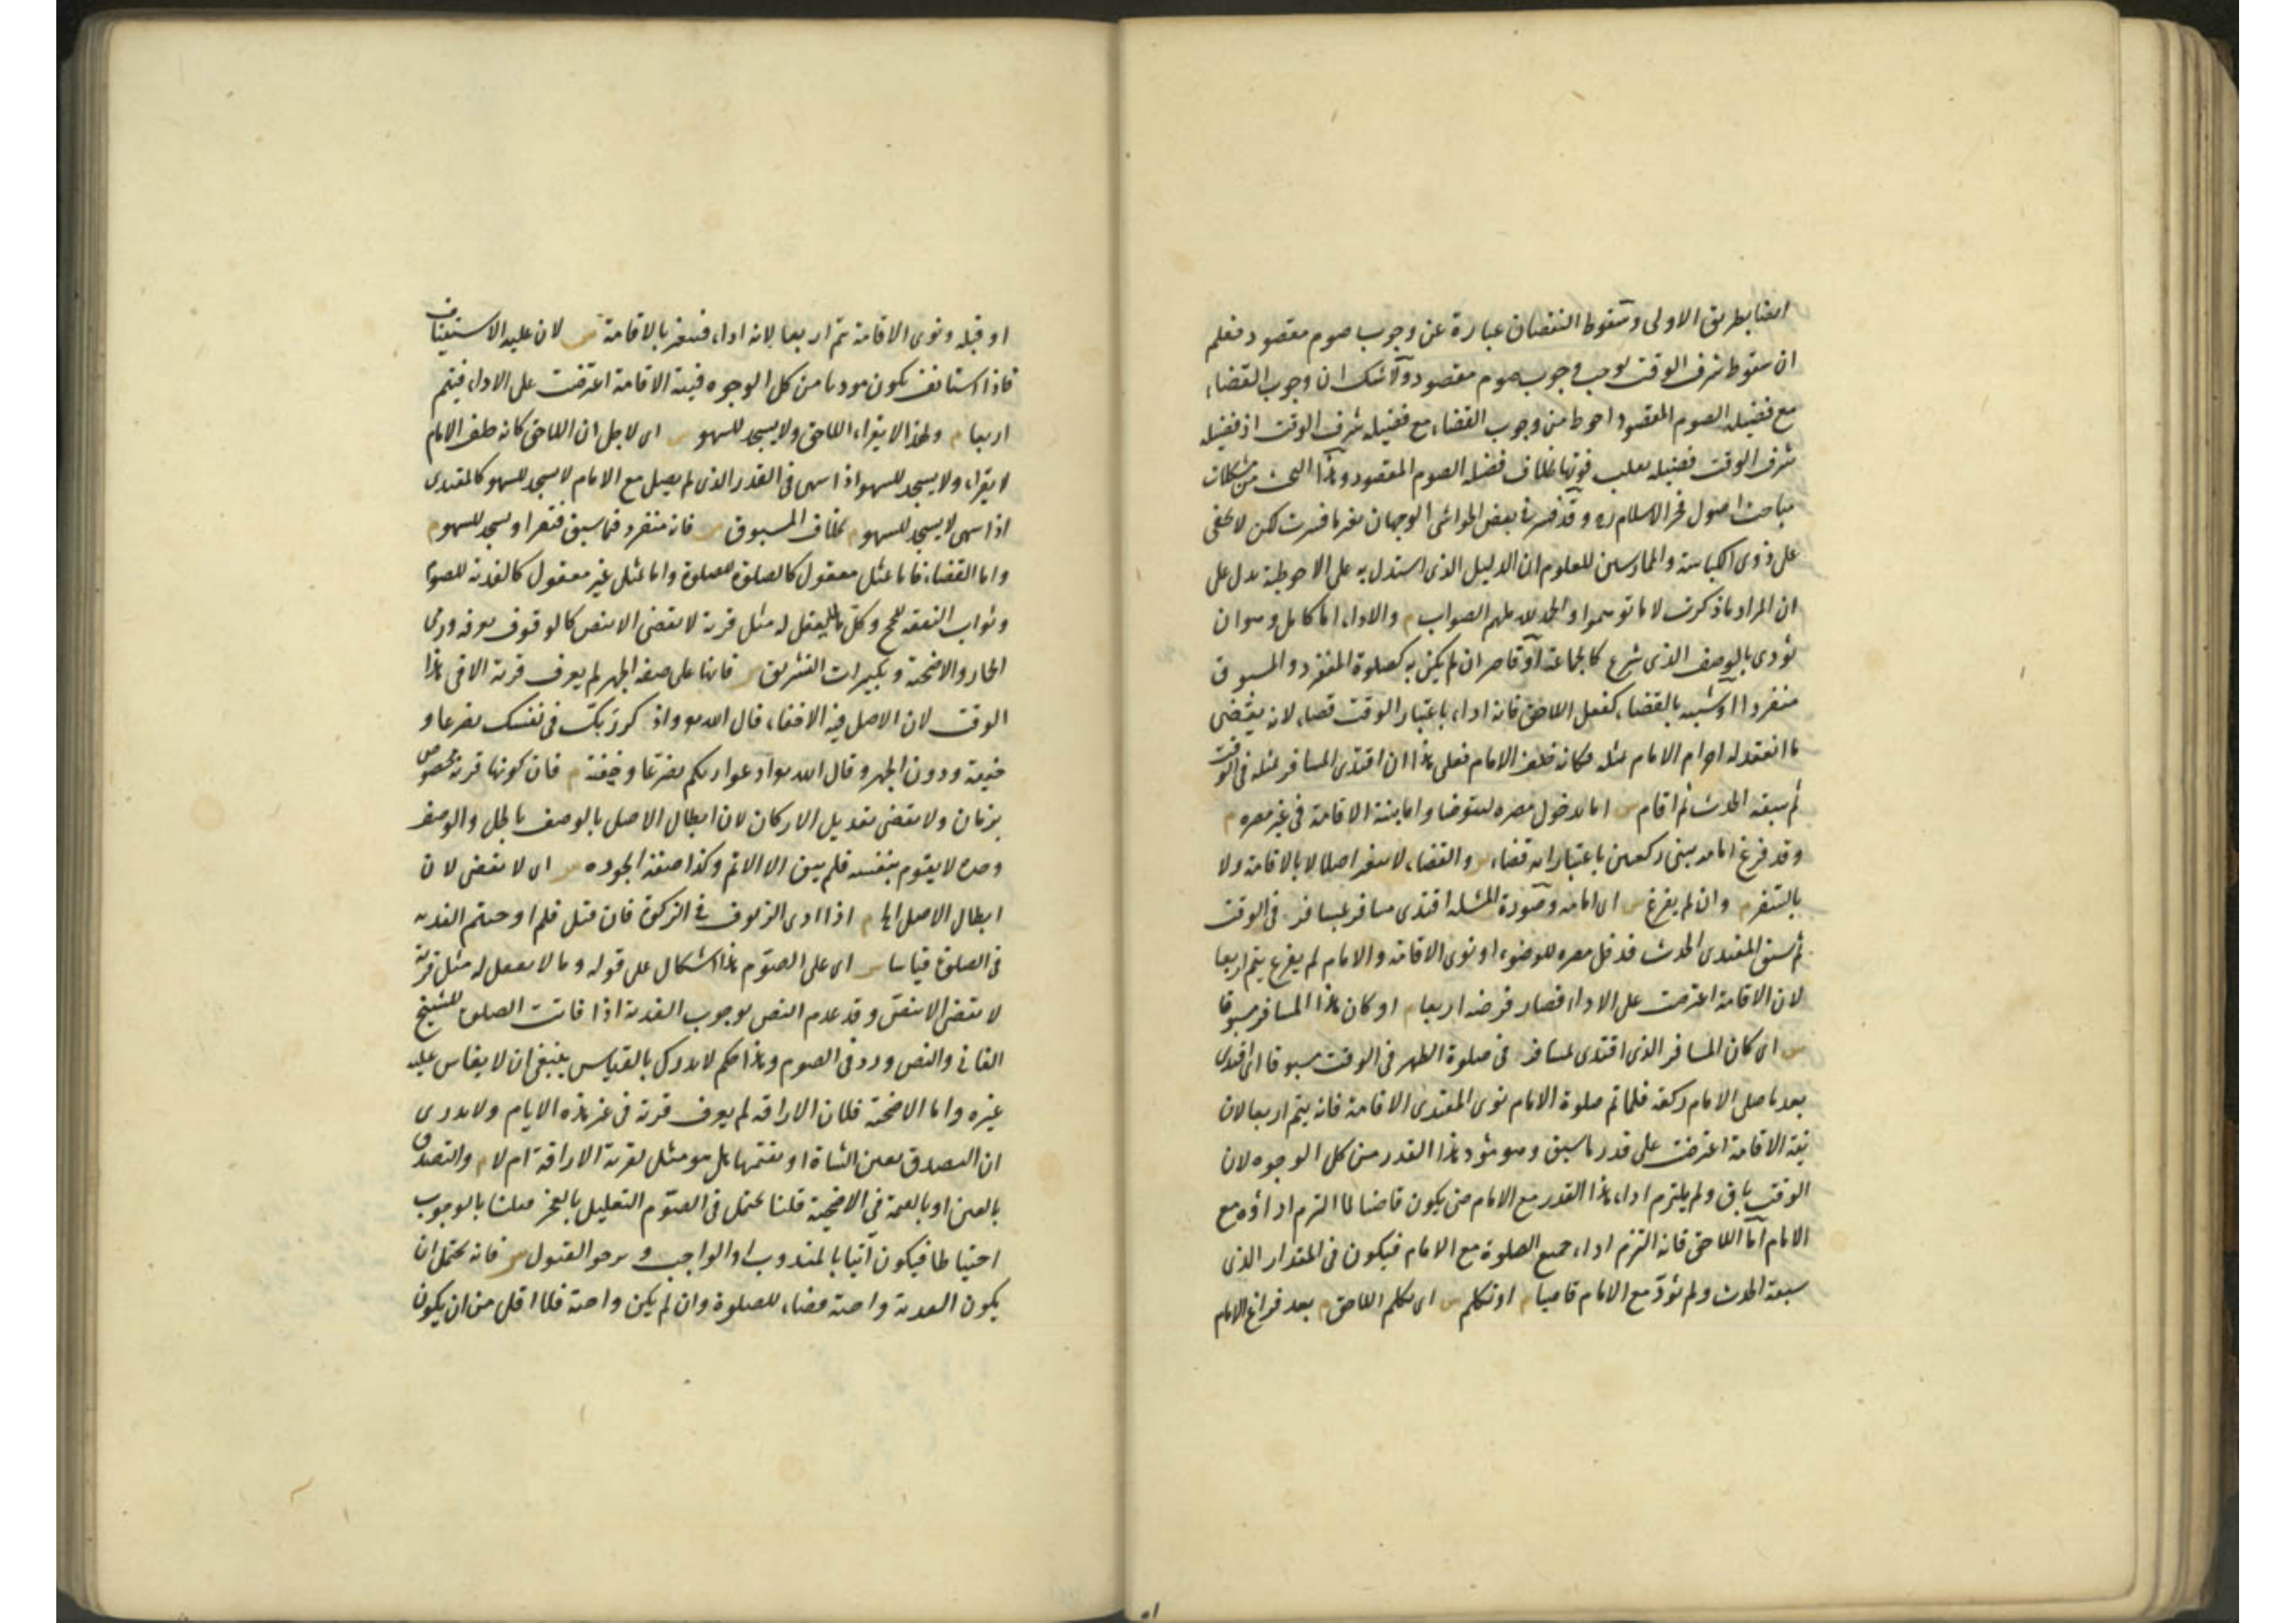 ايضا بطريق الاولى وسقوط النقصان عبارة عن وجوب صوم مقصود فعلم
ان سقوط شرف الوقت يوجب وجوب صوم مقصود ولا شك ان وجوب القضاء
مع فضيلة الصوم المقصود احوط من وجوب القضاء مع فضيلة شرف الوقت اذ فضيلة
شرف الوقت فضيلة يغلب فوتها بخلاف فضيلة الصوم المقصود وهذا البحث من مشكلات
مباحث اصول فخر الاسلام ره وقد فسر في بعض الحواشي الوجهان بغير ما فسرت لكن لا يخفى
على ذوى الكياسة والممارسين للعلوم ان الدليل الذى استدل به على الاحوطية يدل على
ان المراد ما ذكرت لا ما توهموا والحمد لله ملهم الصواب م والاداء اما كامل وهو ان
يؤدى بالوصف الذى شرع كالجماعة او قاصر ان لم يكن به كصلوة المنفرد والمسبوق
منفردا او شبيه بالقضاء كفعل اللاحق فانه اداء باعتبار الوقت قضاء لانه يقضى
ما انعقد له احرام الامام بمثله فكانه خلف الامام فعلى هذا ان اقتدى المسافر بمثله فى الوقت
ثم سبقه الحدث ثم اقام س اما بدخول مصره ليتوضا واما بنية الاقامة فى غير مصره م
وقد فرغ امامه يبنى ركعتين باعتبار انه قضاء س والقضاء لا يتغير اصلا لا بالاقامة ولا
بالسفر م وان لم يفرغ س اى امامه وصورة المسئلة اقتدى مسافر بمسافر فى الوقت
ثم سبق المقتدى الحدث فدخل مصره للوضوء او نوى الاقامة والامام لم يفرغ يتم اربعا
لان الاقامة اعترضت على الاداء فصار فرضه اربعا م او كان هذا المسافر مسبوقا
س اى كان المسافر الذى اقتدى بمسافر فى صلوة الظهر فى الوقت مسبوقا اى اقتدى
بعد ما صلى الامام ركعة فلما تم صلوة الامام نوى المقتدى الاقامة فانه يتم اربعا لان
نية الاقامة اعترضت على قدر ما سبق وهو مؤد هذا القدر من كل الوجوه لان
الوقت باق ولم يلتزم اداء هذا القدر مع الامام حتى يكون قاضيا لما التزم اداؤه مع
الامام اما اللاحق فانه التزم اداء جميع الصلوة مع الامام فيكون فى المقدار الذى
سبقه الحدث ولم يؤد مع الامام قاضيا م او تكلم س اى تكلم اللاحق م بعد فراغ الامام
او قبله ونوى الاقامة يتم اربعا لانه اداء فيتغير بالاقامة س لان عليه الاستيناف
فاذا استانف يكون مؤديا من كل الوجوه فنية الاقامة اعترضت على الاداء فيتم
اربعا م ولهذا لا يقراء اللاحق ولا يسجد للسهو س اى لاجل ان اللاحق كانه خلف الامام
لا يقراء ولا يسجد للسهو اذا سهى فى القدر الذى لم يصل مع الامام لا يسجد للسهو كالمقتدى
اذا سهى لا يسجد للسهو م بخلاف المسبوق س فانه منفرد فيما سبق فيقرا ويسجد للسهو م
واما القضاء فاما بمثل معقول كالصلوة للصلوة واما بمثل غير معقول كالفدية للصوم
وثواب النفقة للحج وكل ما لا يعقل له مثل قربة لا يقضى الا بنص كالوقوف بعرفة ورمى
الجمار والاضحية وتكبيرات التشريق س فانها على صفة الجهر لم يعرف قربة الا فى هذا
الوقت لان الاصل فيه الاخفاء قال الله تعالى واذكر ربك فى نفسك تضرعا و
خيفة ودون الجهر وقال الله تعالى ادعوا ربكم تضرعا وخيفة م فان كونها قربة مخصوص
بزمان ولا يقضى تعديل الاركان لان ابطال الاصل بالوصف باطل والوصف
وحده لا يقوم بنفسه فلم يبق الا الاثم وكذا صفة الجوده س اى لا يقضى لان
ابطال الاصل الخ م اذا ادى الزيوف فى الزكوة فان قيل فلم اوجبتم الفدية
فى الصلوة قياسا س اى على الصوم هذا اشكال على قوله وما لا يعقل له مثل قربة
لا يقضى الا بنص وقد عدم النص بوجوب الفدية اذا فاتت الصلوة للشيخ
الفانى والنص ورد فى الصوم وهذا حكم لا يدرك بالقياس ينبغى ان لا يقاس عليه
غيره واما الاضحية فلان الاراقة لم يعرف قربة فى غير هذه الايام ولا يدرى
ان التصدق بعين الشاة او بقيمتها هل هو مثل لقربة الاراقة ام لا م والتصدق
بالعين او بالقيمة فى الاضحية قلنا يحتمل فى الصوم التعليل بالعجز فقلنا بالوجوب
احتياطا فيكون آتيا بالمندوب او الواجب و يرجو القبول س فانه يحتمل ان
يكون الفدية واجبة قضاء للصلوة وان لم يكن واجبة فلا اقل من ان يكون